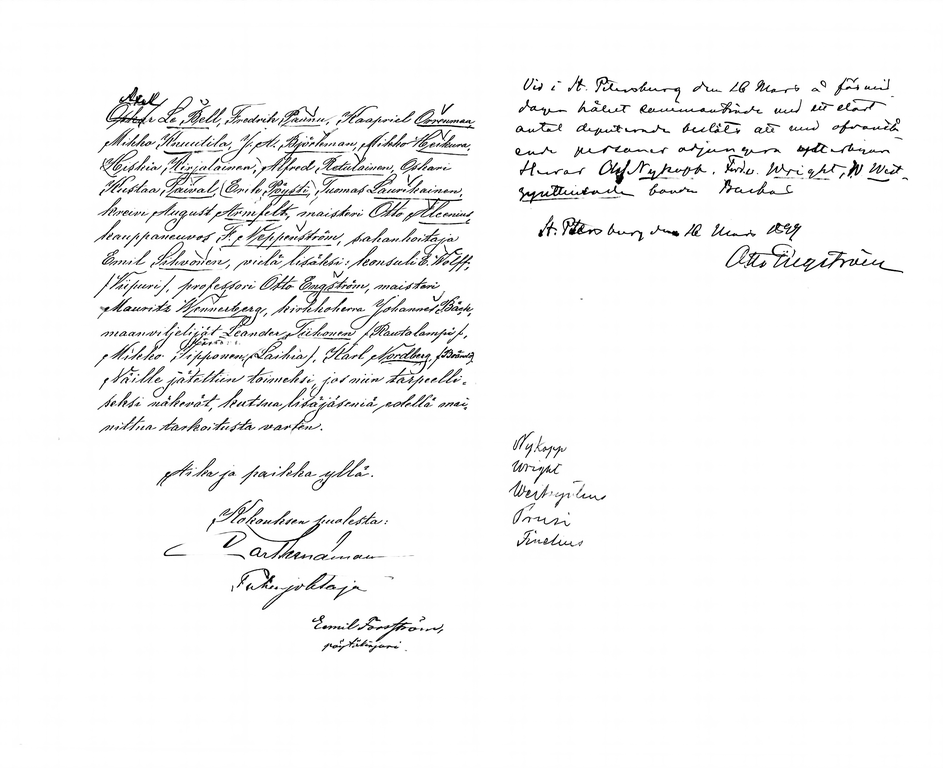 Axel
Le Bell, Fredrik Pannu, Kaapriel Oornunaa,
Mikko Knuutila, Y. A. Björkman, Mikko Heikura,
Heikki Kirjalainen, Alfred Retulainen, Oskari
Kustaa Taival, Erik Pöysti, Tuomas Laurikainen,
kreivi August Armfelt, maisteri Otto Alcenius,
kauppaneuvos F. Neppenström, sahanhoitaja
Emil Sihvonen, vielä lisäksi: konsuli E. Wolff,
/Viipuri/, professori Otto Engström, maisteri
Mauritz Wennerberg, kirkkoherra Johannes Bäck,
maanviljelijät Leander Tiihonen /Rautalampi/,
Mikko Sipponen /Laihia/, Karl Nordberg,
Näille jätettiin toimeksi, jos niin tarpeelli-
seksi näkevät, kutsua lisäjäseniä edellä mai-
nittua tarkoitusta varten.
Aika ja paikka yllä.
Kokouksen puolesta:
Puheenjohtaja
Eemil Forsström,
pöytäkirjuri.
Vid i St. Petersburg den 16 Mars å förmid
dagen hållet sammanträde med ett stort
antal deputerade beslöts att med ofvanstå
ende personer adjungera ytterligare
Herrar Nykopp, Ferd. Wright, W West-
St. Petersburg den 16 Mars 1899
Otto Engström
Nykopp
Wright